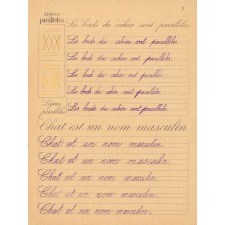 Lignes
parallèles
Les bords du cahier sont parallèles.
Les bords du cahier sont parallèles.
Les bords du cahier sont parallèles.
Les bords du cahier sont parallèles.
Les bords du cahier sont parallèles.
Les bords du cahier sont parallèles.
Lignes
parallèles
Chat est un nom masculin.
Chat est un nom masculin.
Chat est un nom masculin.
Chat est un nom masculin.
Chat est un nom masculin.
Chat est un nom masculin.